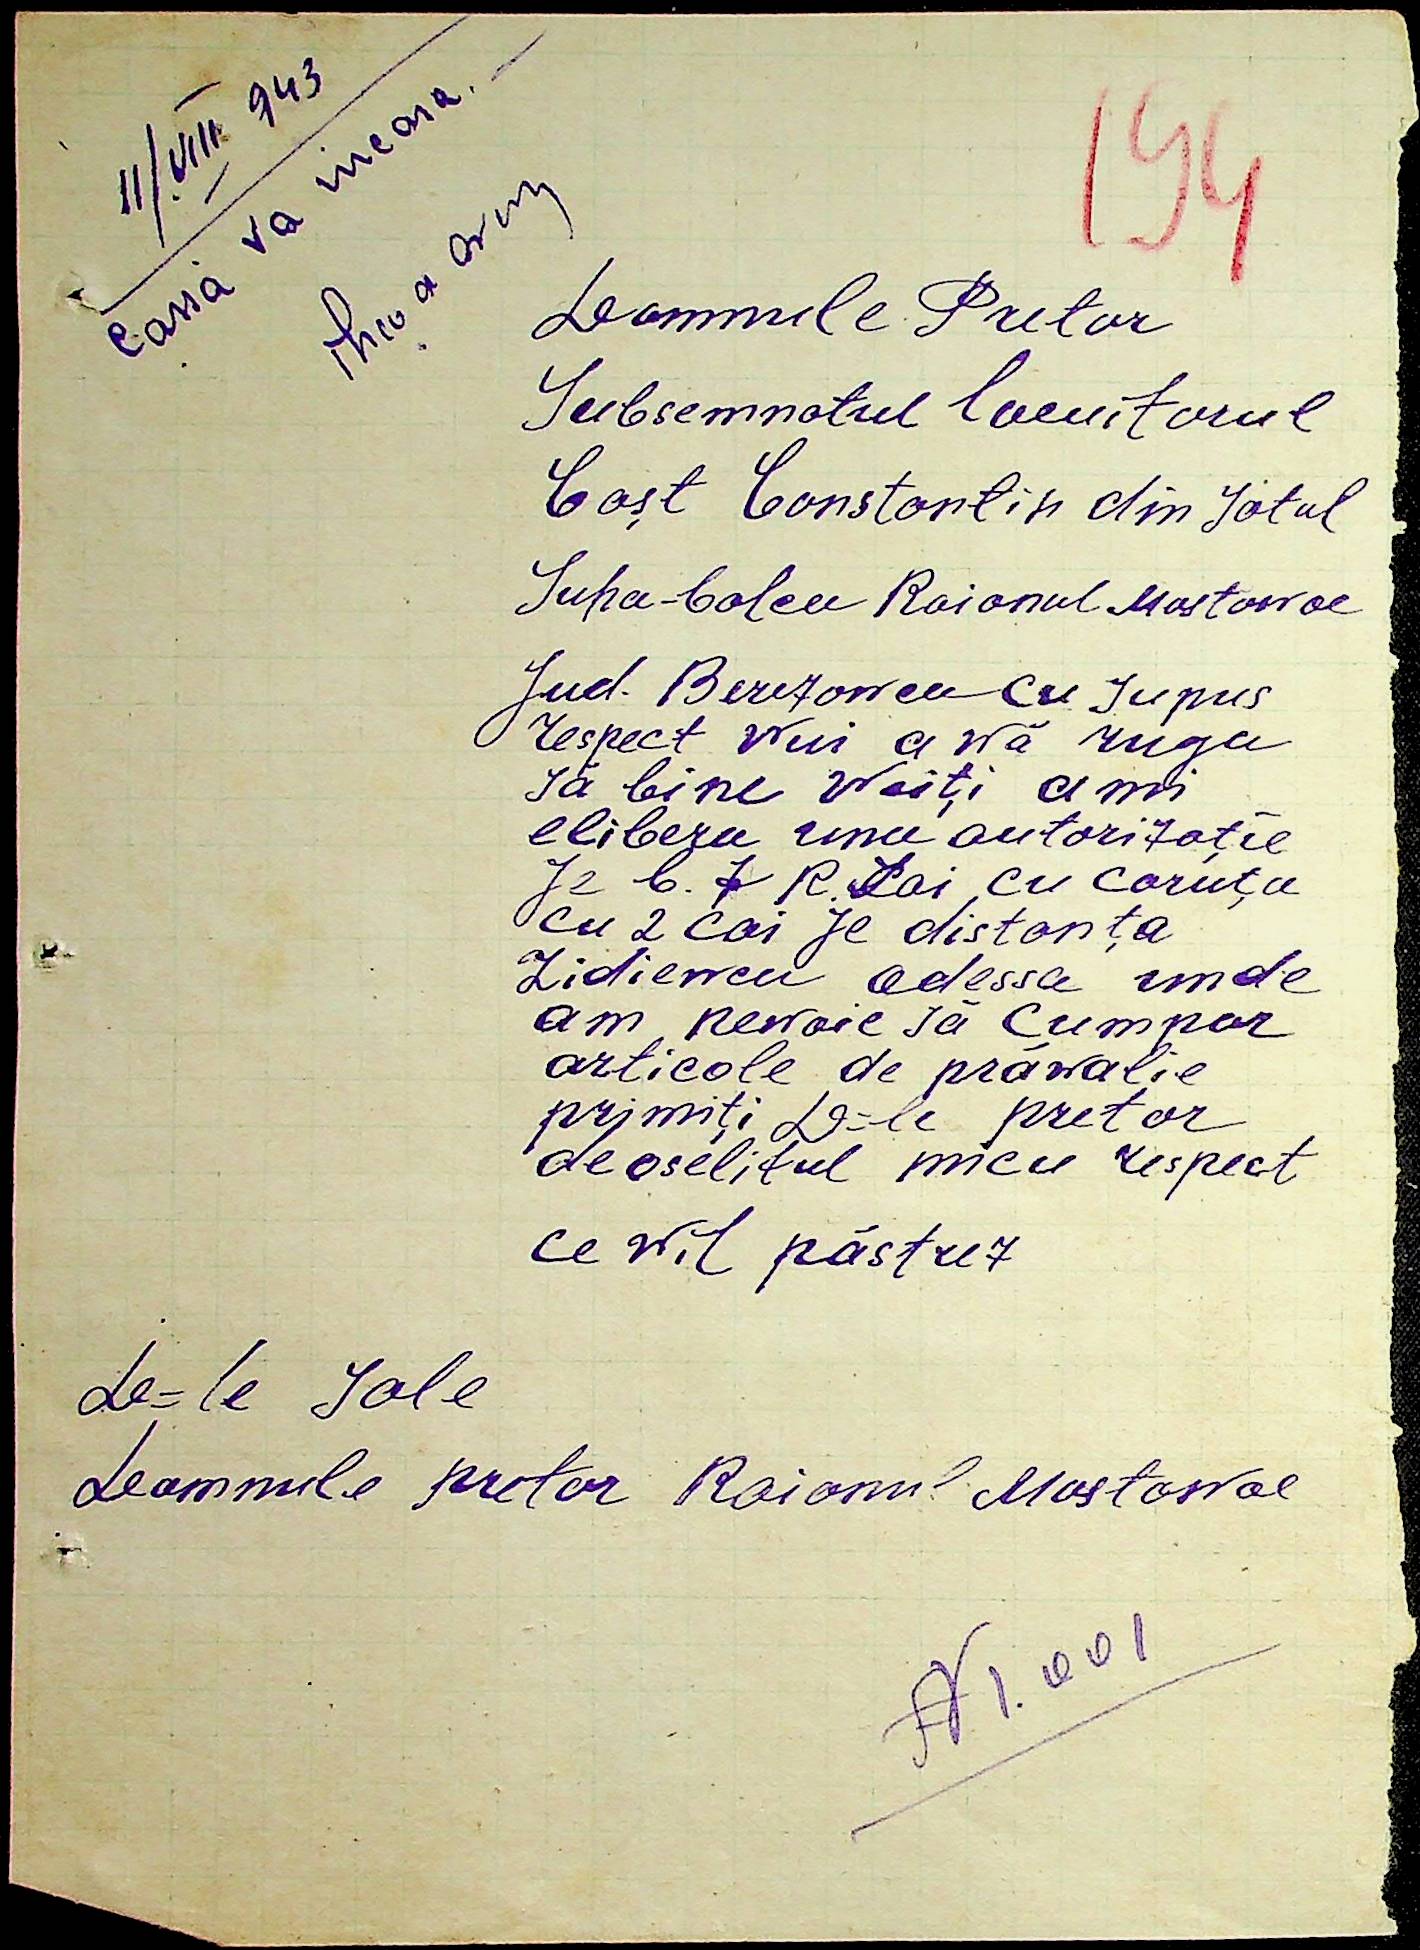 11/VIII 943
Cassa va incasa.
194
Domnule Pretor
Subsemnatul locuitorul
Cast Constantin din satul
Suha-balca Raionul Mostowoe
Jud. Berezowca cu supus
respect wui a wă ruga
să bine woiți a mi
elibera una autorizație
pe cu caruța
cu 2 cai pe distanța
Zidiewca odessa unde
am newoie să cumpar
articole de prăwalie
primiți D=le pretor
deoselitul micu respect
ce wil păstrez
D=le Sale
Domnule pretor Raionul Mostowoe
N 1.001